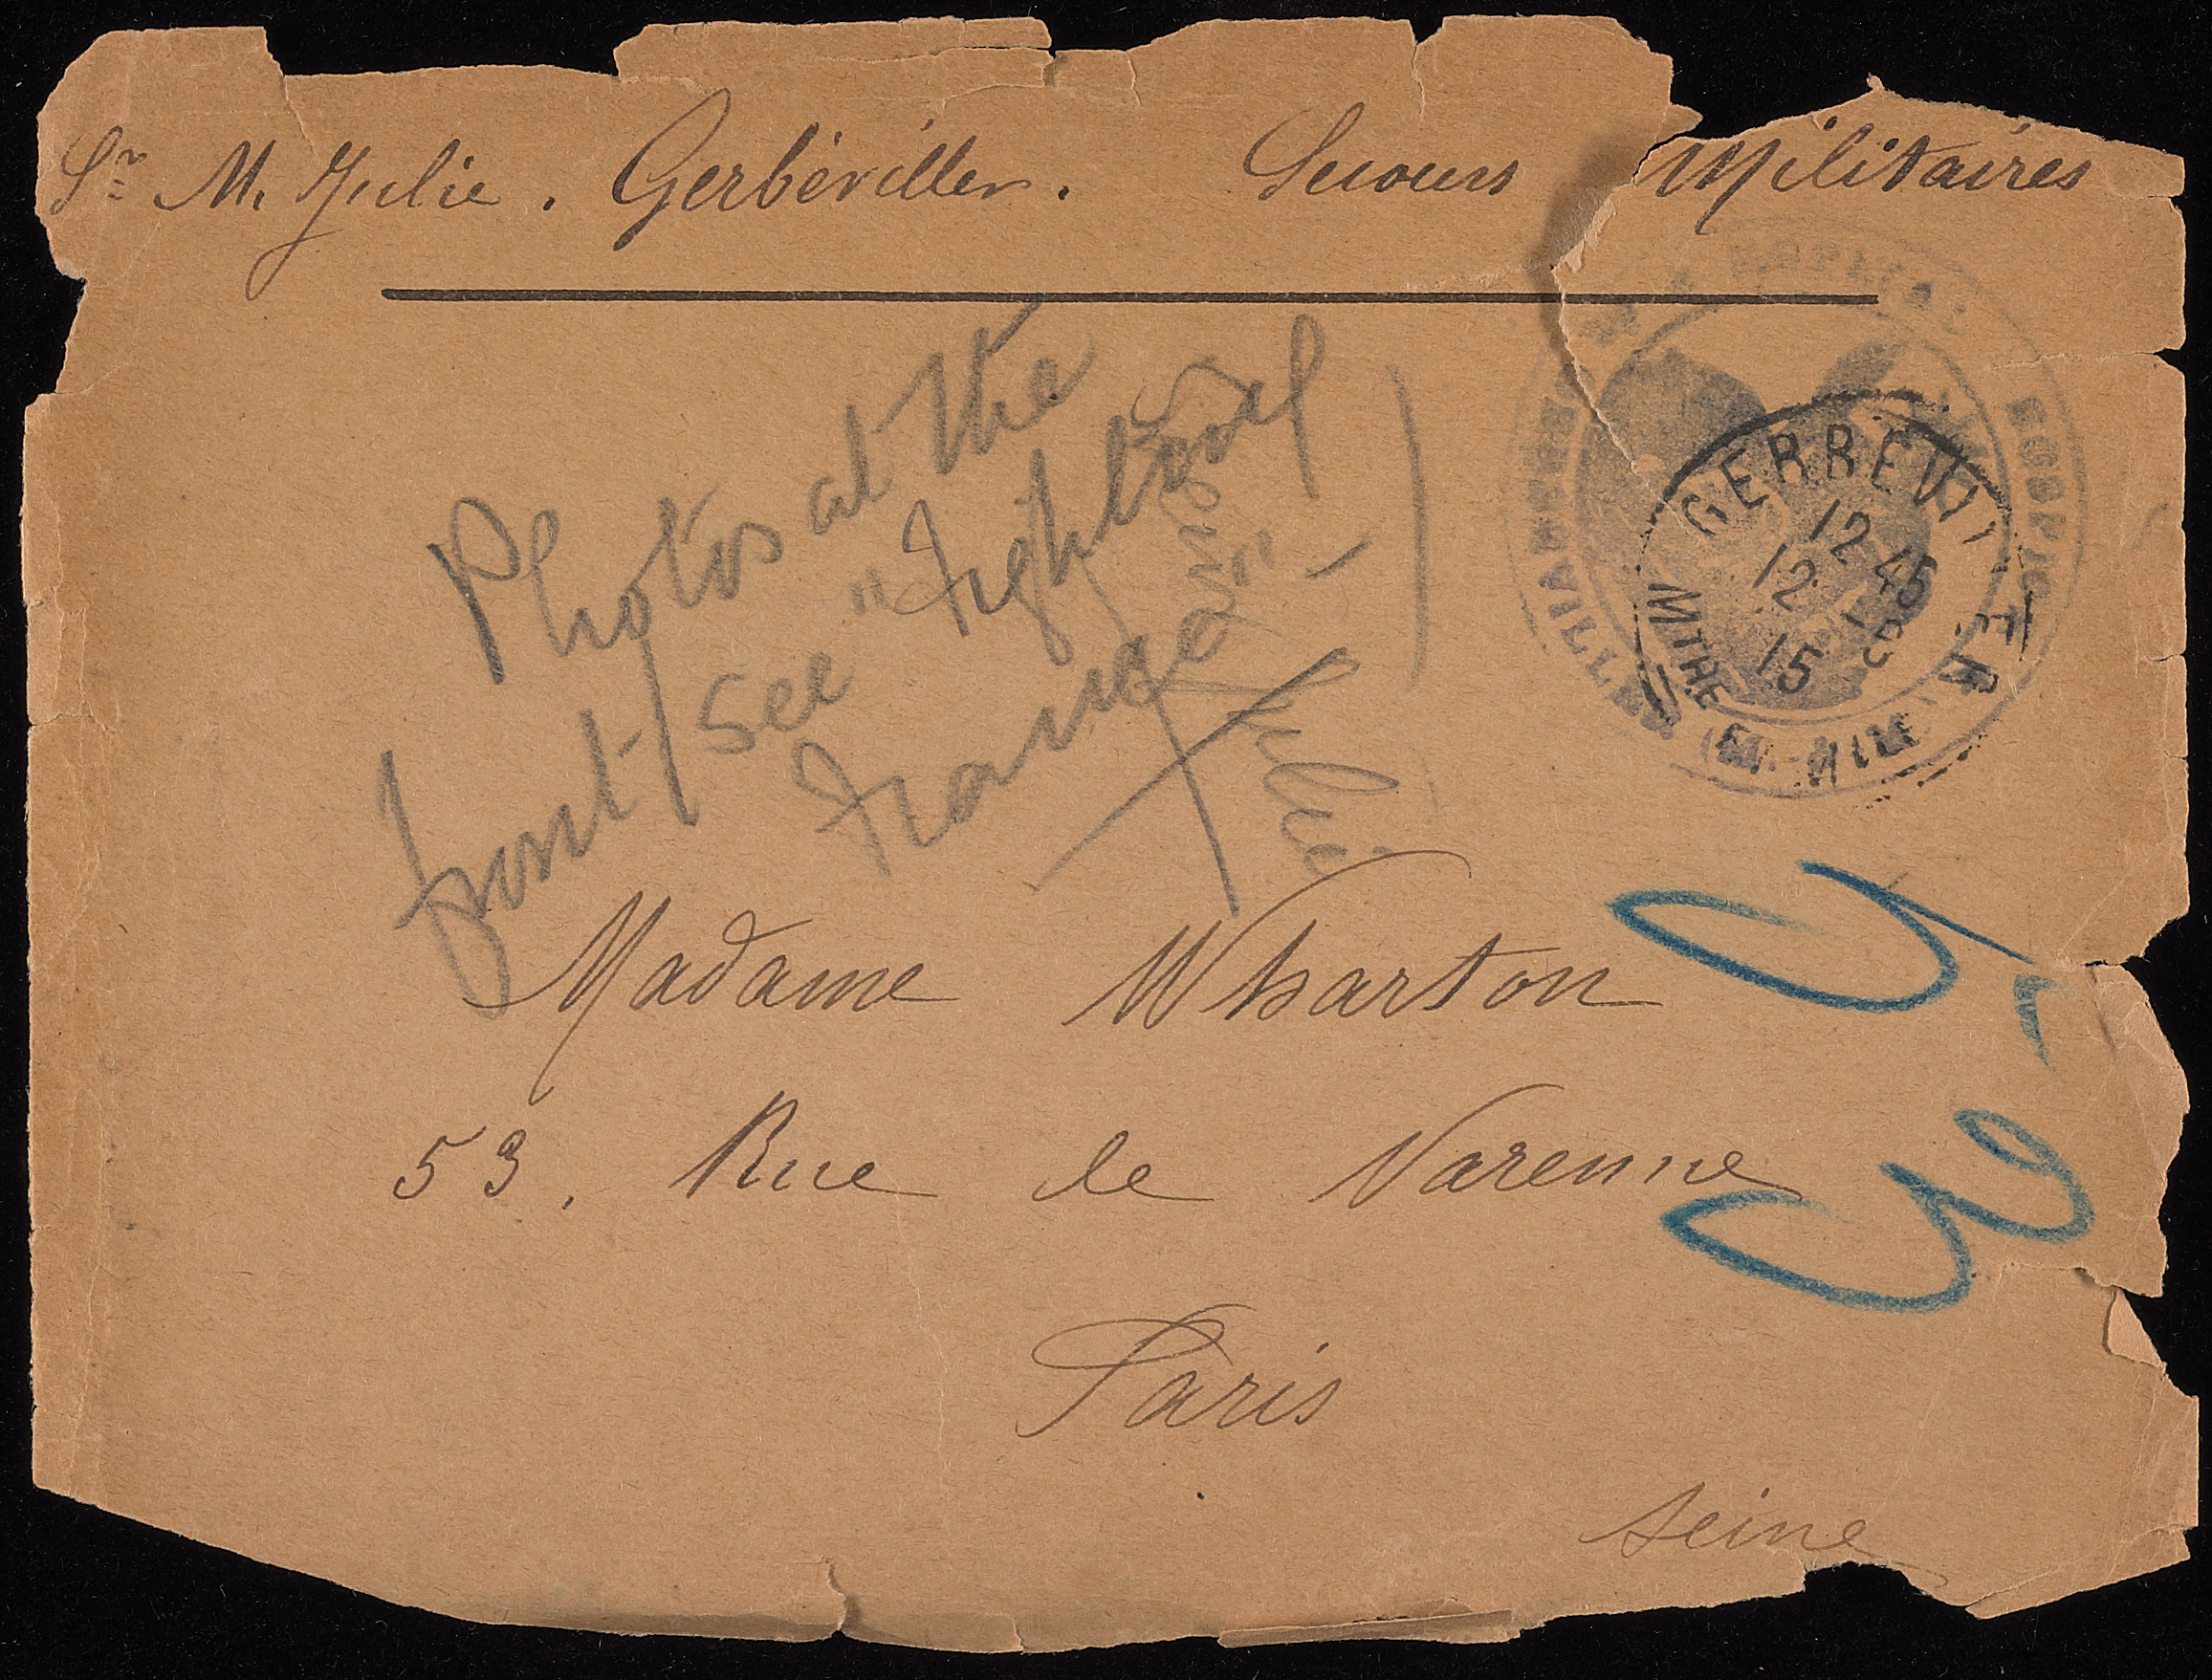 Sr M. Julie. Gerbéviller. Secours Militaires
Photos at the
front / see "Fighting
France" -
Julie
Madame Wharton
53, Rue de Varenne
Paris
Seine
GERBÉVI
12 45
12
15
MTHE ET
HOSPICE